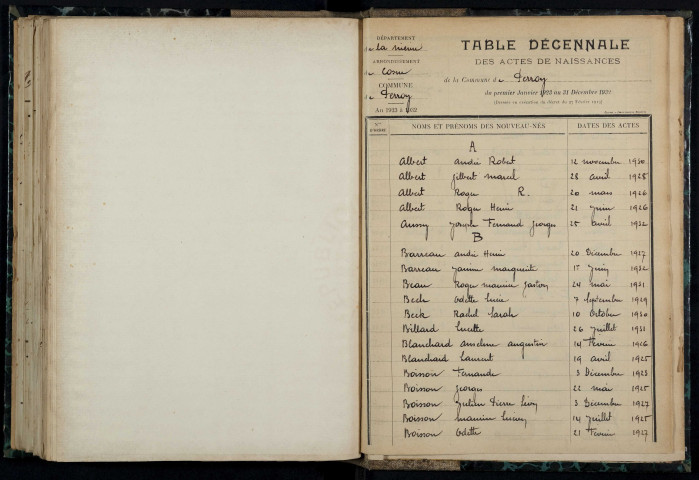 DÉPARTEMENT
de la Nièvre
ARRONDISSEMENT
de Cosne
COMMUNE
de Perroy
An 1923 à 1932
TABLE DÉCENNALE
DES ACTES DE NAISSANCES
de la Commune de Perroy
du premier Janvier 1923 au 31 Décembre 1932
NOMS ET PRÉNOMS DES NOUVEAU-NÉS DATES DES ACTES
A
Albert andré Robert 12 novembre 1930
Albert Gilbert marcel 28 avril 1928
Albert Roger R. 20 mars 1926
Albert Roger Henri 21 juin 1926
Joseph Fernand Georges 25 avril 1932
B
Barreau andré Henri 20 Décembre 1927
Barreau Janine marguerite 1er juin 1932
Beau Roger maurice Gaston 24 mai 1931
Beck Odette Lucie 7 Septembre 1929
Beck Rachel Sarah 10 Octobre 1930
Billard Lucette 26 juillet 1931
Blanchard anselme augustin 14 Février 1926
Blanchard Laurent 19 avril 1925
Boisson Fernande 3 Décembre 1923
Boisson Georges 22 mai 1925
Boisson Julien Pierre Léon 3 Décembre 1927
Boisson maurice Lucien 14 juillet 1925
Boisson Odette 21 Février 1927